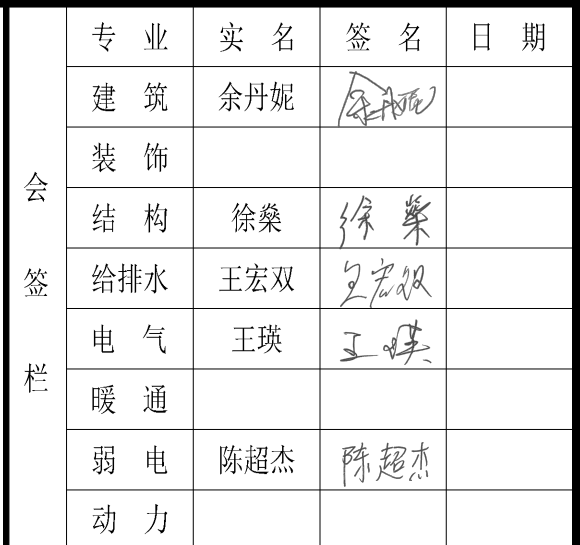 会签栏
专业 实名 签名 日期
建筑 余丹妮 余丹妮
装饰
结构 徐燊 徐燊
给排水 王宏双 王宏双
电气 王瑛 王瑛
暖通
弱电 陈超杰 陈超杰
动力